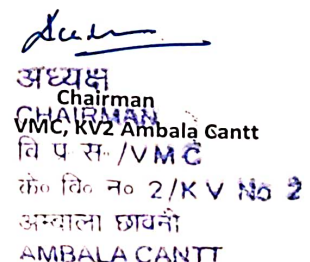 अध्यक्ष
CHAIRMAN
Chairman
VMC, KV2 Ambala Gantt
वि प स /VMC
के० वि० न० 2/K V No 2
अम्बाला छावनी
AMBALA CANTT